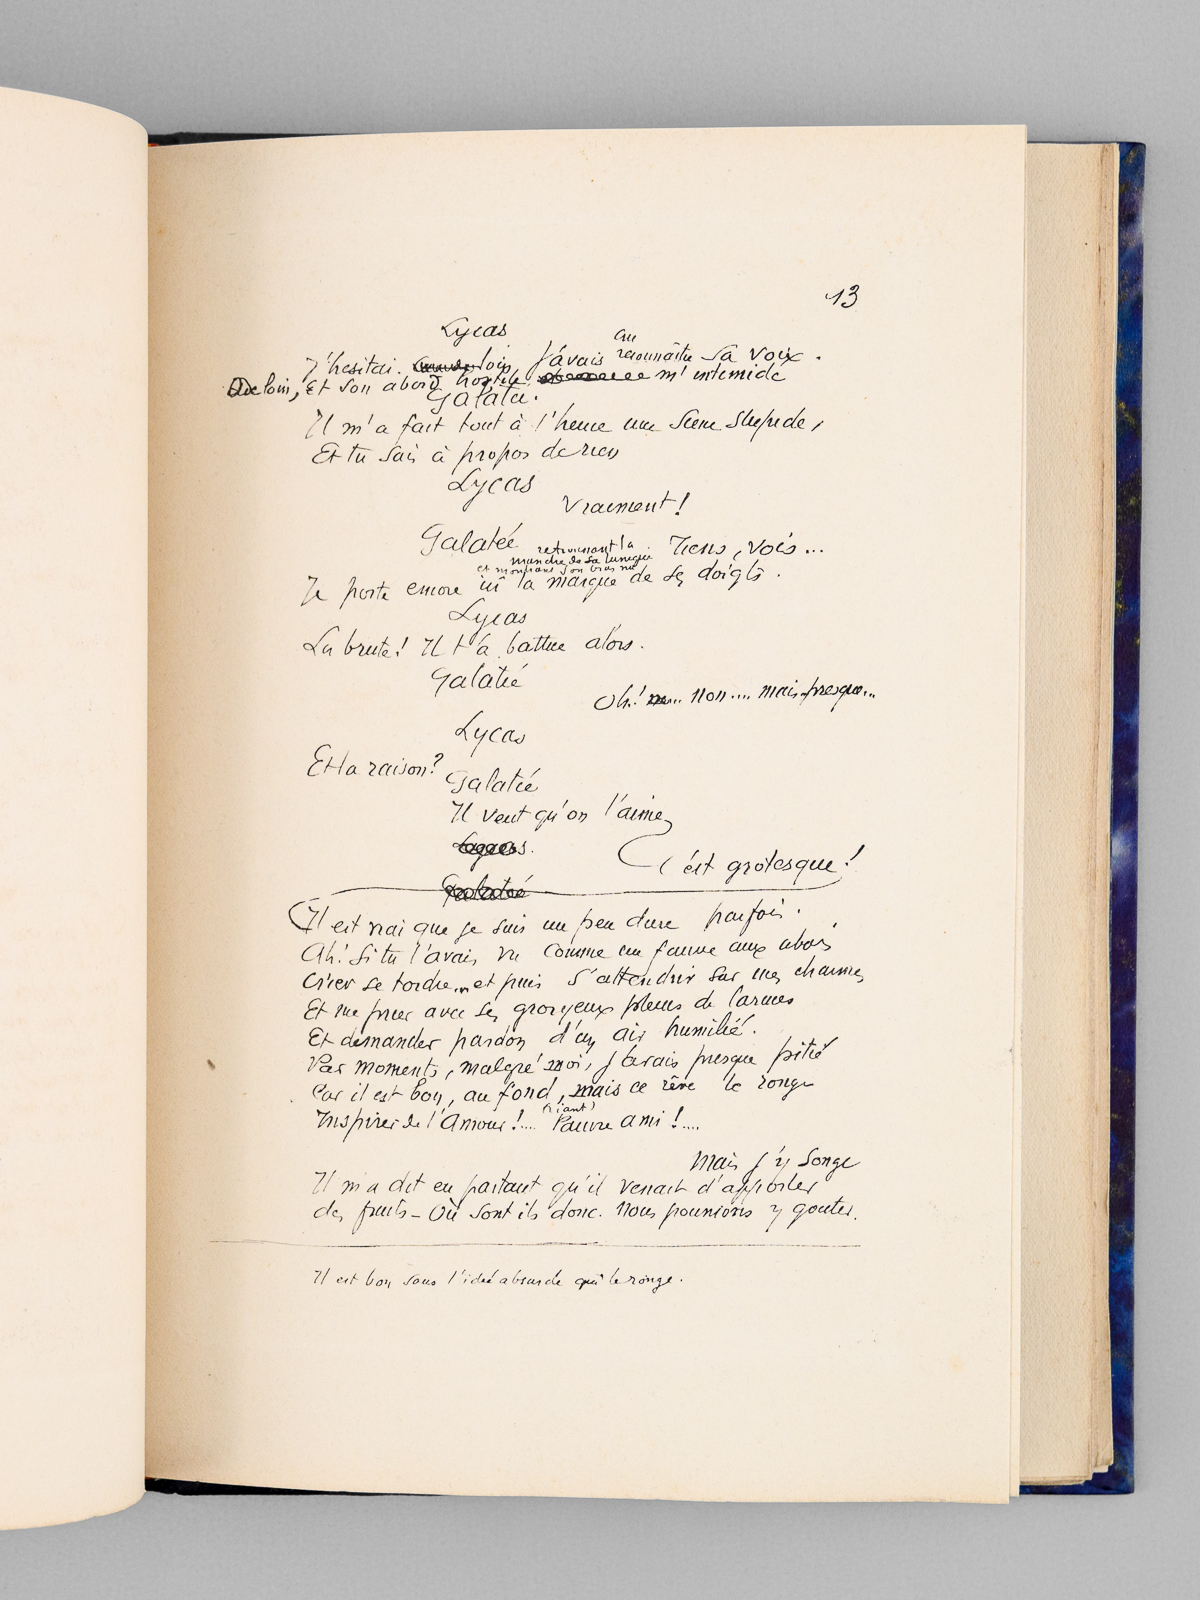 13
Lycas
J'hesitai. loin, J'avais cru reconnaître sa voix.
De loin, Et son abord hostile m'intimide
Galatée.
Il m'a fait tout à l'heure une scène stupide,
Et tu sais à propos de rien
Lycas
Vraiment!
Galatée retournant la manche de sa tunique et montrant son bras nu Tiens, vois...
Je porte encore ici la marque de ses doigts.
Lycas
La brute! Il t'a battue alors.
Galatée
Oh! non.... mais presque...
Lycas
Et la raison?
Galatée
Il veut qu'on l'aime,
Lycas.
C'est grotesque!
Galatée
Il est vrai que je suis un peu dure parfois.
Ah! Si tu l'avais vu comme un fauve aux abois
Crier se tordre... et puis s'attendrir sur mes charmes
Et me prier avec ses gros yeux pleins de larmes
Et demander pardon d'un air humilié.
Par moments, malgré moi, j'avais presque pitié
Car il est bon, au fond, mais ce rêve le ronge
Inspirer de l'Amour!.... (riant) Pauvre ami!....
Mais j'y songe
Il m'a dit en partant qu'il venait d'apporter
des fruits - Où sont ils donc. Nous pourrions y gouter.
Il est bon sous l'idée absurde qui le ronge.